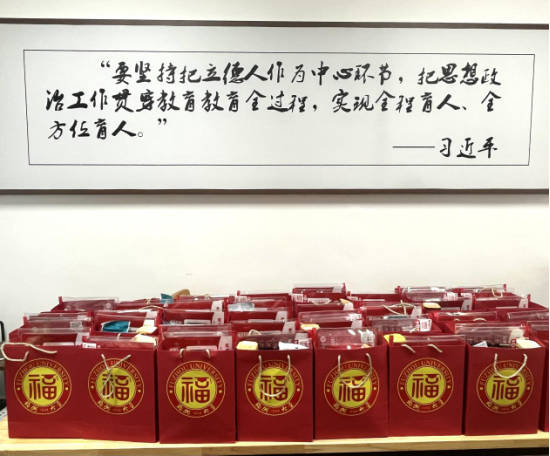 “要坚持把立德人作为中心环节，把思想政
治工作贯穿教育教育全过程，实现全程育人、全
方位育人。”
——习近平
FUZHOU UNIVERSITY
福
福州 1958 大学